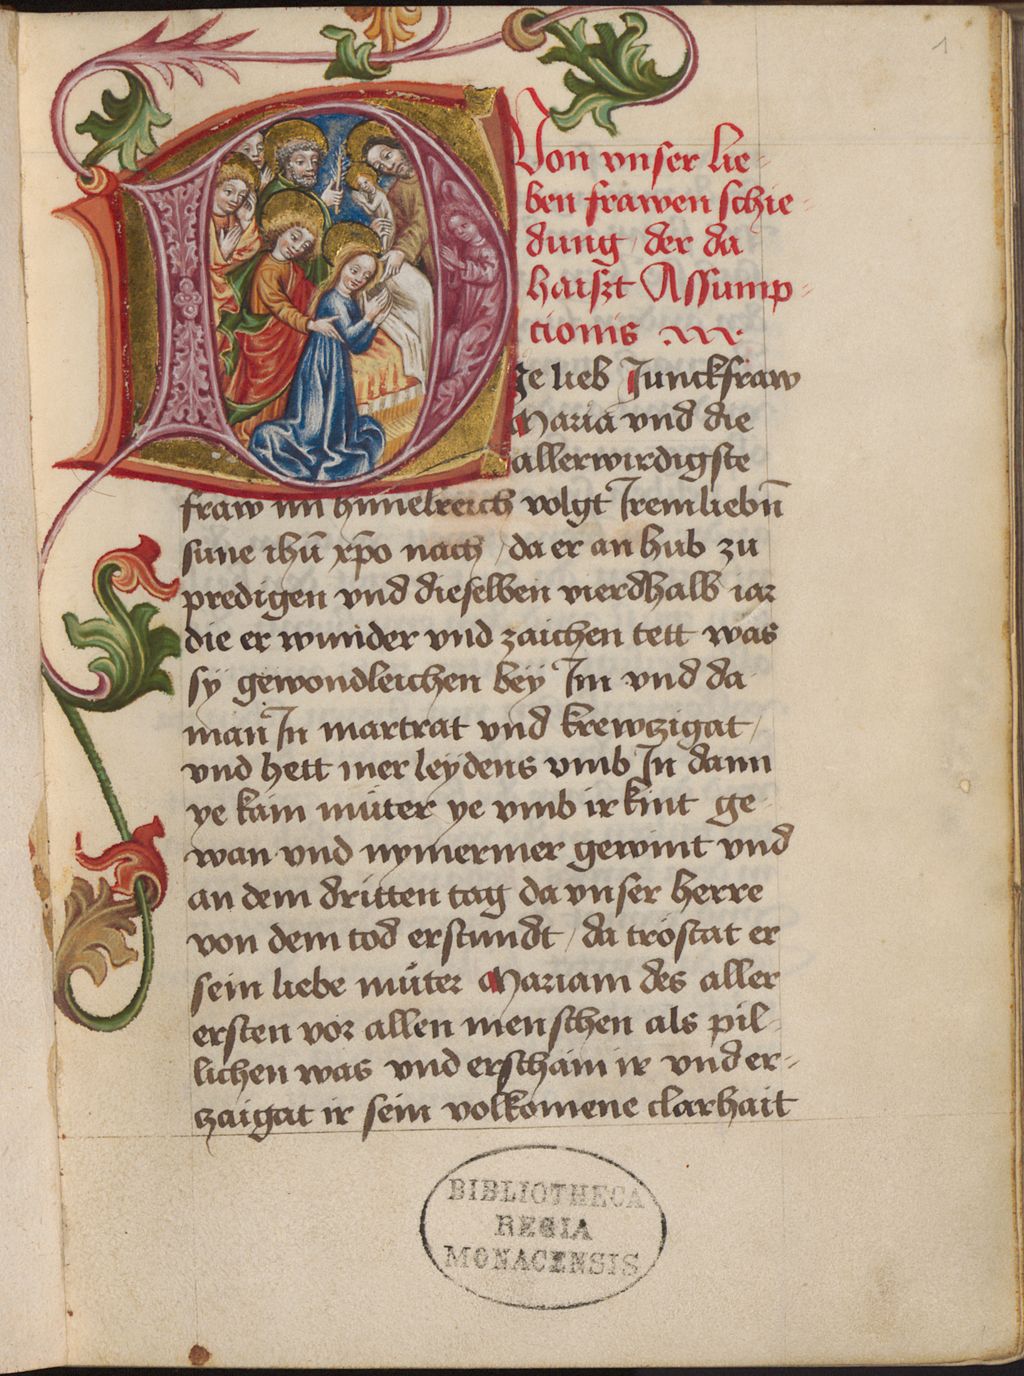 1
Von vnser lie-
ben frawen schie-
dung / der da
haiszt Assump-
tionis
Die lieb Junckfraw
Maria vnd die
allerwirdigste
fraw im himelreich volgt Irem liebn̄
sune ihū xp̄o nach / da er an hub zu
predigen vnd dieselben vierdhalb iar
die er wunder vnd zaichen tett was
sÿ gewondleichen beÿ Im vnd da
man In martrat vnd krewczigat /
vnd hett mer leÿdens vmb In dann
ye kain mûter ye vmb ir kint ge-
wan vnd nymermer gewint vnd
an dem dritten tag da vnser herre
von dem tod erstundt / da tröstat er
sein liebe mûter Mariam des aller
ersten vor allen menschen als pil-
lichen was vnd erschain ir vnd er-
zaigat ir sein volkomene clarhait
BIBLIOTHECA
REGIA
MONACENSIS